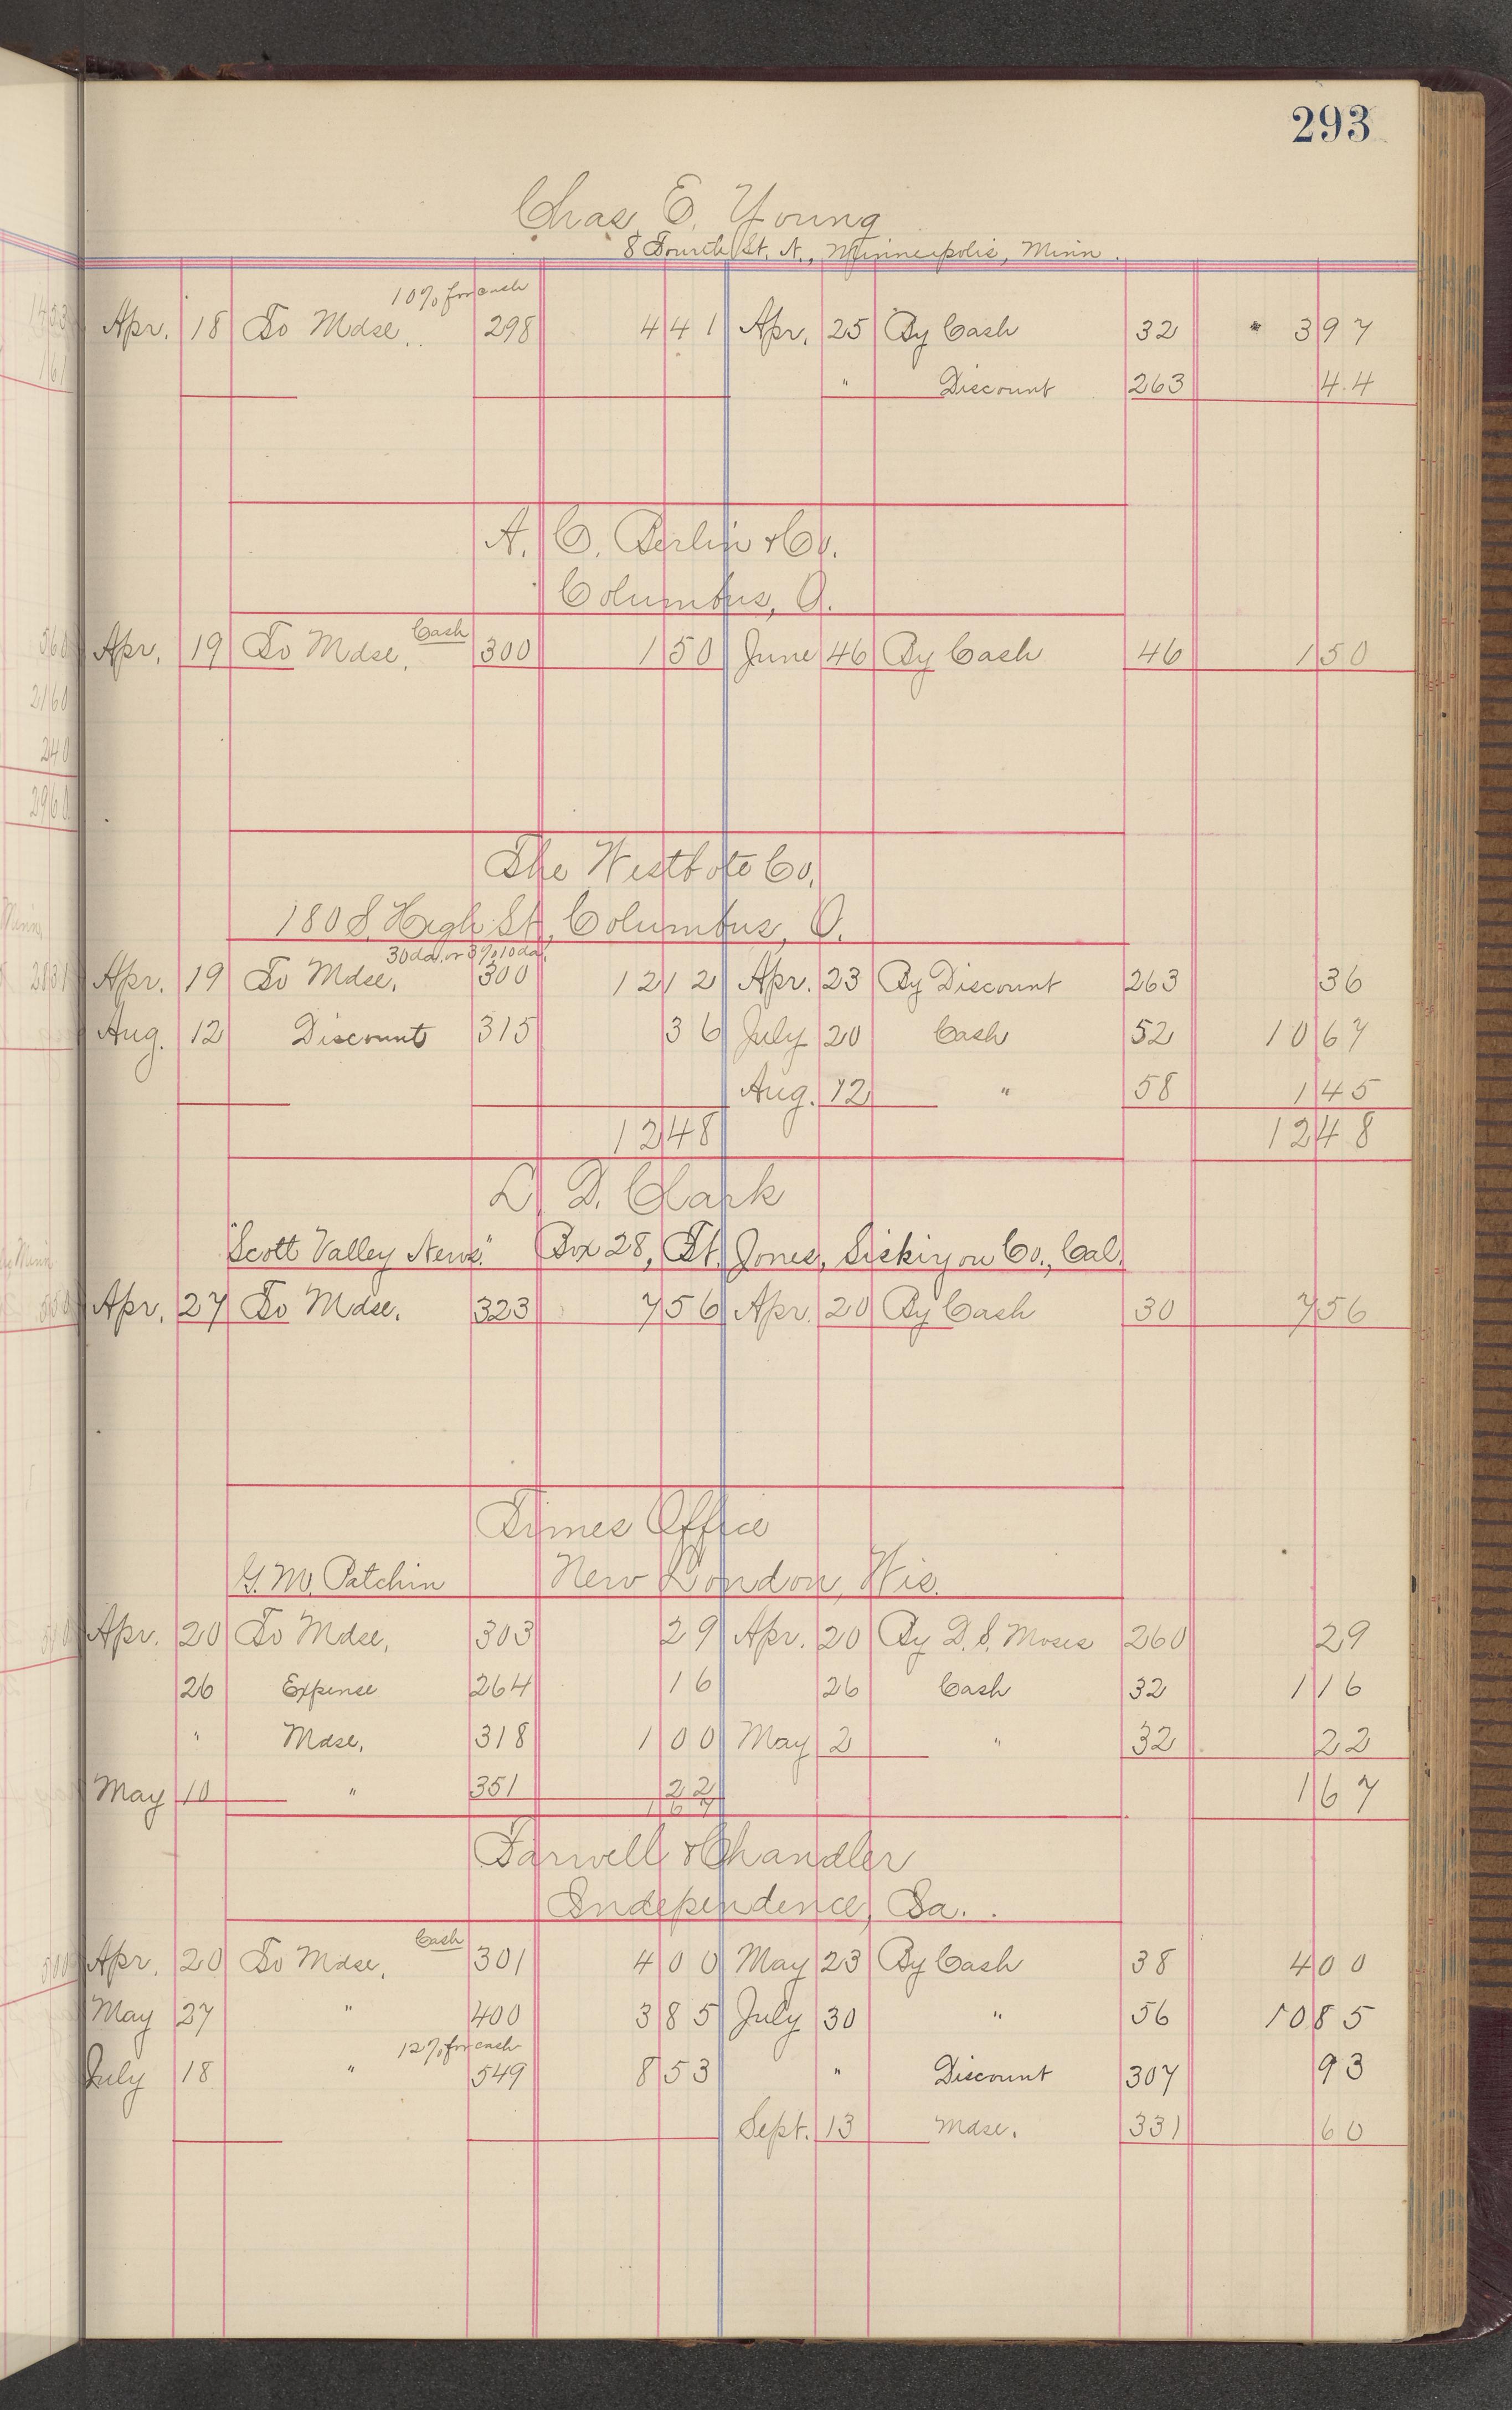 293
Chas. E. Young
8 Fourth St. N., Minneapolis, Minn.
10% for cash
Apr. 18 To Mdse. 298 4 41 Apr. 25 By Cash 32 * 3 97
" Discount 263 44
A. C. Berlin & Co.
Columbus, O.
Cash
Apr. 19 To Mdse. 300 1 50 June 46 By Cash 46 1 50
The Westbote Co.
180 S. High St., Columbus, O.
30 da. or 3% 10 da.
Apr. 19 To Mdse. 300 12 12 Apr. 23 By Discount 263 36
Aug. 12 Discount 315 36 July 20 Cash 52 10 67
Aug. 12 " 58 1 45
12 48 12 48
L. D. Clark
"Scott Valley News." Box 28, Ft. Jones, Siskiyou Co., Cal.
Apr. 27 To Mdse. 323 7 56 Apr. 20 By Cash 30 7 56
Times Office
G. M. Patchin New London, Wis.
Apr. 20 To Mdse. 303 29 Apr. 20 By D. S. Moses 260 29
26 Expense 264 16 26 Cash 32 1 16
" Mdse. 318 1 00 May 2 " 32 22
May 10 " 351 22 1 67
1 67
Farwell & Chandler
Independence, Ia.
Cash
Apr. 20 To Mdse. 301 4 00 May 23 By Cash 38 4 00
May 27 " 400 3 85 July 30 " 56 10 85
12% for cash
July 18 " 549 8 53 " Discount 307 93
Sept. 13 Mdse. 331 60